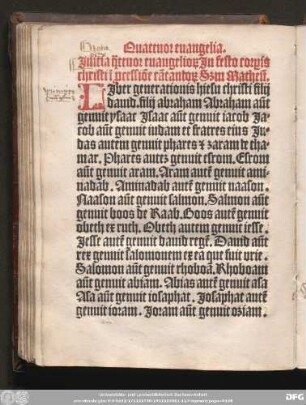 Quattuor euangelia.
Initia q̄ttuor euangelioꝝ In festo corꝑis
christi ī ꝓcessiōe cātandoꝝ Scḋm Matheū.
LIber generationis hiesu christi filij
dauid. filij abraham Abraham aūt
genuit ysaac Isaac aūt genuit iacob Ja
cob aūt genuit iudam et fratres eius Ju
das autem genuit phares & zaram de tha
mar. Phares autē genuit esrom. Esrom
aūt genuit aram. Aram autē genuit ami
nadab. Aminadab autē genuit naason.
Naason aūt genuit salmon. Salmon aūt
genuit boos de Raab. Boos autē genuit
obeth ex ruth. Obeth autem genuit iesse.
Jesse autē genuit dauid regē. Dauid aūt
rex genuit salomonem ex ea que fuit vrie.
Salomon aūt genuit roboā. Roboam
aūt genuit abiam. Abias autē genuit asa
Asa aūt genuit iosaphat. Josaphat autē
genuit ioram. Joram aūt genuit oziam.
DFG